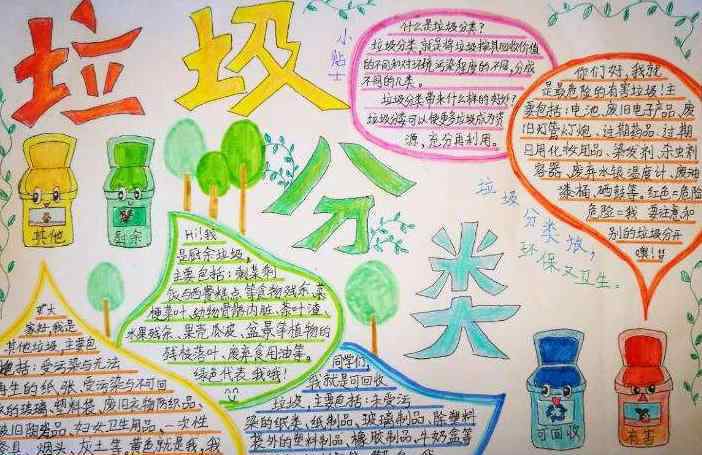 垃圾
分
类
小贴士
什么是垃圾分类?
垃圾分类,就是将垃圾按其回收价值
的不同和对环境污染程度的不同,分成
不同的几类。
垃圾分类带来什么样的好处?
垃圾分类可以使更多垃圾成为资
源,充分再利用。
你们好,我就
是最危险的有害垃圾!主
要包括:电池、废旧电子产品、废
旧灯管灯炮、过期药品、过期
日用化妆用品、染发剂、杀虫剂
容器、废弃水银温度计、废油
漆桶、硒鼓等。红色=危险
危险=我 要注意和
别的垃圾分开
噢!!
垃圾
分类投,
环保又卫生。
其他
厨余
Hi!我
是厨余垃圾,
主要包括:剩菜剩
饭与西餐糕点等食物残余、菜
梗菜叶、动物骨骼内脏、茶叶渣、
水果残余、果壳瓜皮、盆景等植物的
残枝落叶、废弃食用油等。
绿色代表我哦!
大
家好,我是
其他垃圾,主要包
括:受污染与无法
再生的纸张、受污染与不可回
的玻璃、塑料袋、废旧衣物防织品、
破旧陶瓷品、妇女卫生用品、一次性
餐具、烟头、灰土等,黄色就是我,我
同学们,
我就是可回收
垃圾,主要包括:未受污
染的纸类、纸制品、玻璃制品、除塑料
袋外的塑料制品、橡胶制品、牛奶盒等
可回收
有害